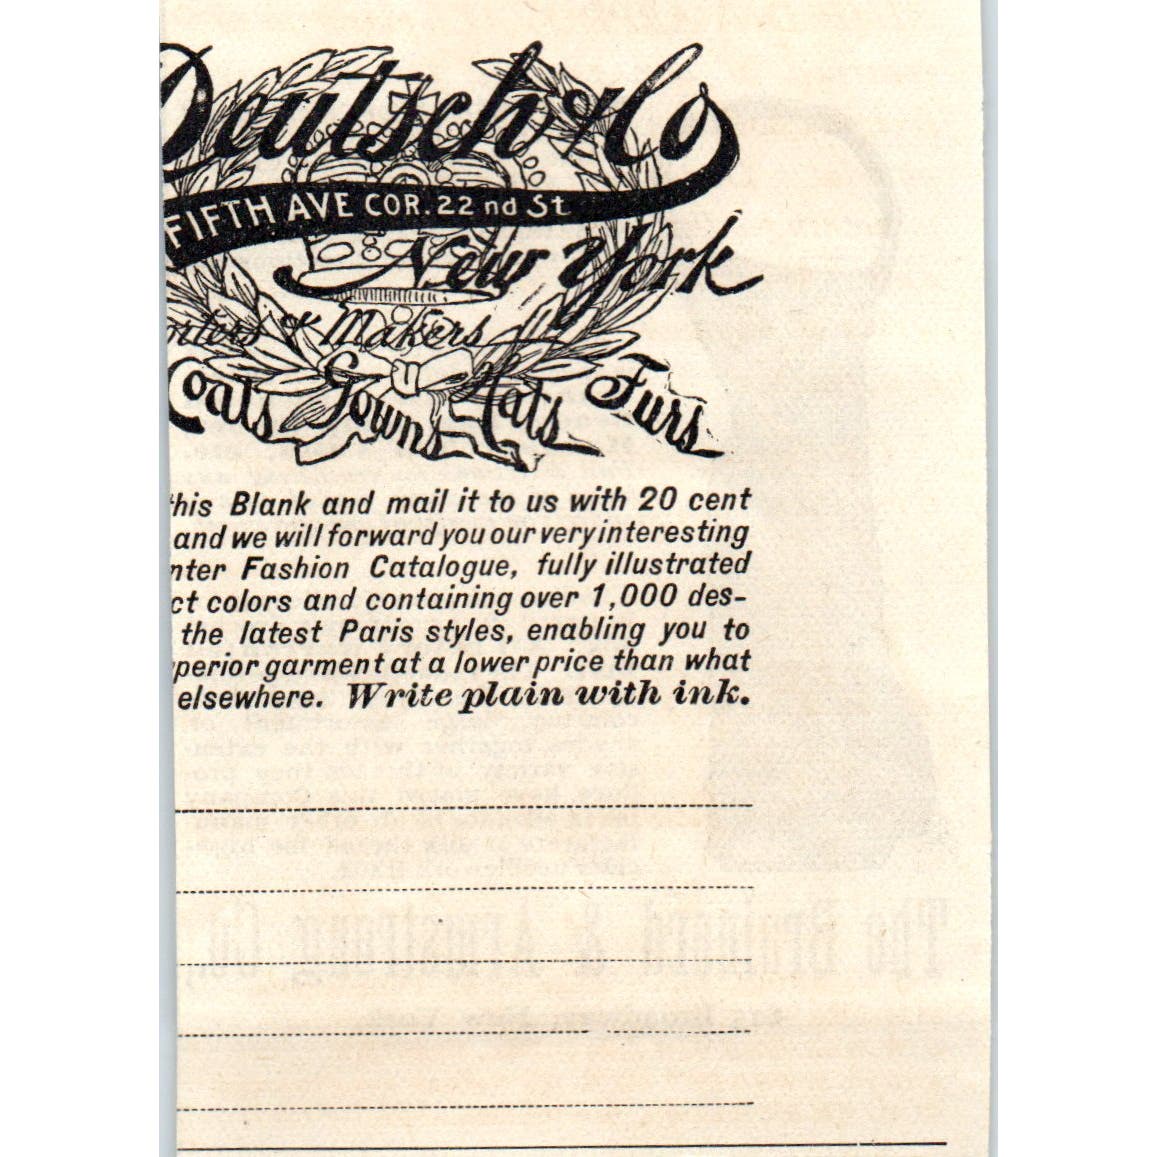 Deutsch & Co
FIFTH AVE COR. 22 nd St
New York
orters & Makers
Coats Gowns Hats Furs
this Blank and mail it to us with 20 cent
and we will forward you our very interesting
nter Fashion Catalogue, fully illustrated
ct colors and containing over 1,000 des-
the latest Paris styles, enabling you to
perior garment at a lower price than what
elsewhere. Write plain with ink.
The Brainerd & Armstrong Co.,